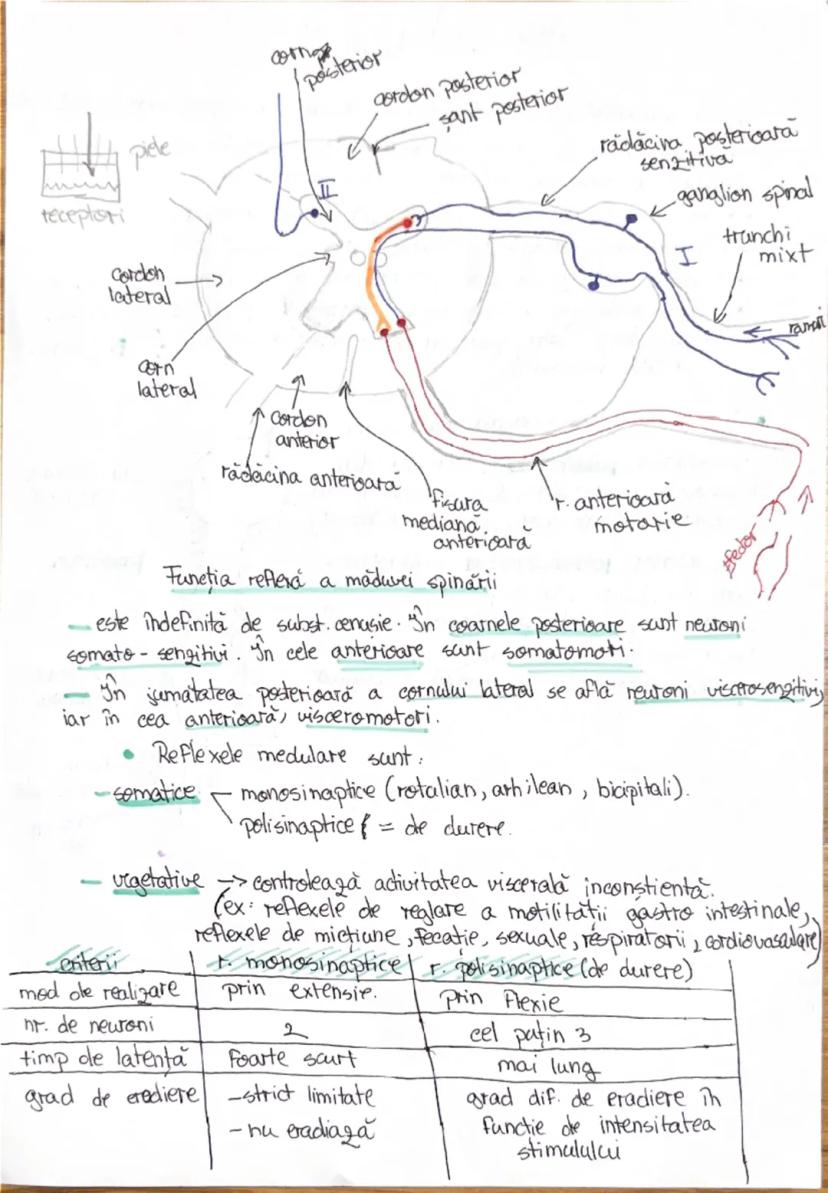 cornp posterior
cordon posterior
șanț posterior
piele
receptori
II
rădăcina posterioară
senzitivă
ganglion spinal
I
trunchi
mixt
ramuri
cordon
lateral
corn
lateral
cordon
anterior
rădăcina anterioară
fisura
mediană
anterioară
r. anterioară
motorie
efector
Funcția reflexă a măduvei spinării
– este îndefinită de subst. cenușie. În coarnele posterioare sunt neuroni
somato-senzitivi. În cele anterioare sunt somatomotori.
– În jumătatea posterioară a cornului lateral se află neuroni viscerosenzitivi,
iar în cea anterioară, visceromotori.
• Reflexele medulare sunt:
– somatice – monosinaptice (rotalian, arhilean, bicipitali).
polisinaptice = de durere.
– vegetative → controlează activitatea viscerală inconștientă.
(ex: reflexele de reglare a motilității gastro intestinale,
reflexele de micțiune, fecație, sexuale, respiratorii, cardiovasculare)
criterii r. monosinaptice r. polisinaptice (de durere)
mod de realizare prin extensie. prin flexie
nr. de neuroni 2 cel puțin 3
timp de latență foarte scurt mai lung
grad de erediere -strict limitate grad dif. de eradiere în
-nu eradiază funcție de intensitatea
stimulului